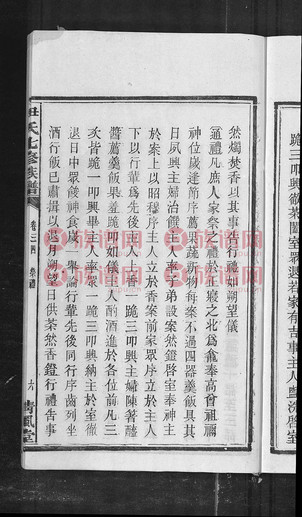 然燭焚香以其事告行禮如朔望儀
通禮凡庶人家祭之禮於正寢之北為龕奉高曾祖禰
神位歲逢節序薦果蔬新物每案不過四器羹飯具其
日夙興主婦治饌主人率子弟設案然鐙啓室奉神主
於案上以昭穆序主人立於香案前家眾序立於主人
下以行輩為先後主人上香一跪三叩興主婦陳箸醯
醬薦羹飯果羞跪叩如儀主人酌酒進於各位前凡三
次皆跪一叩興畢主人率眾一跪三叩興納主於室徹
退日中眾餕神食歲一舉論行輩先後同行序齒列坐
酒行飯已肅揖以退月朔望日供茶然香鐙行禮告事
氏七修族譜
六
清風堂
跪三叩興徹茶闔室眾退若家有吉事主人盥沐啓室